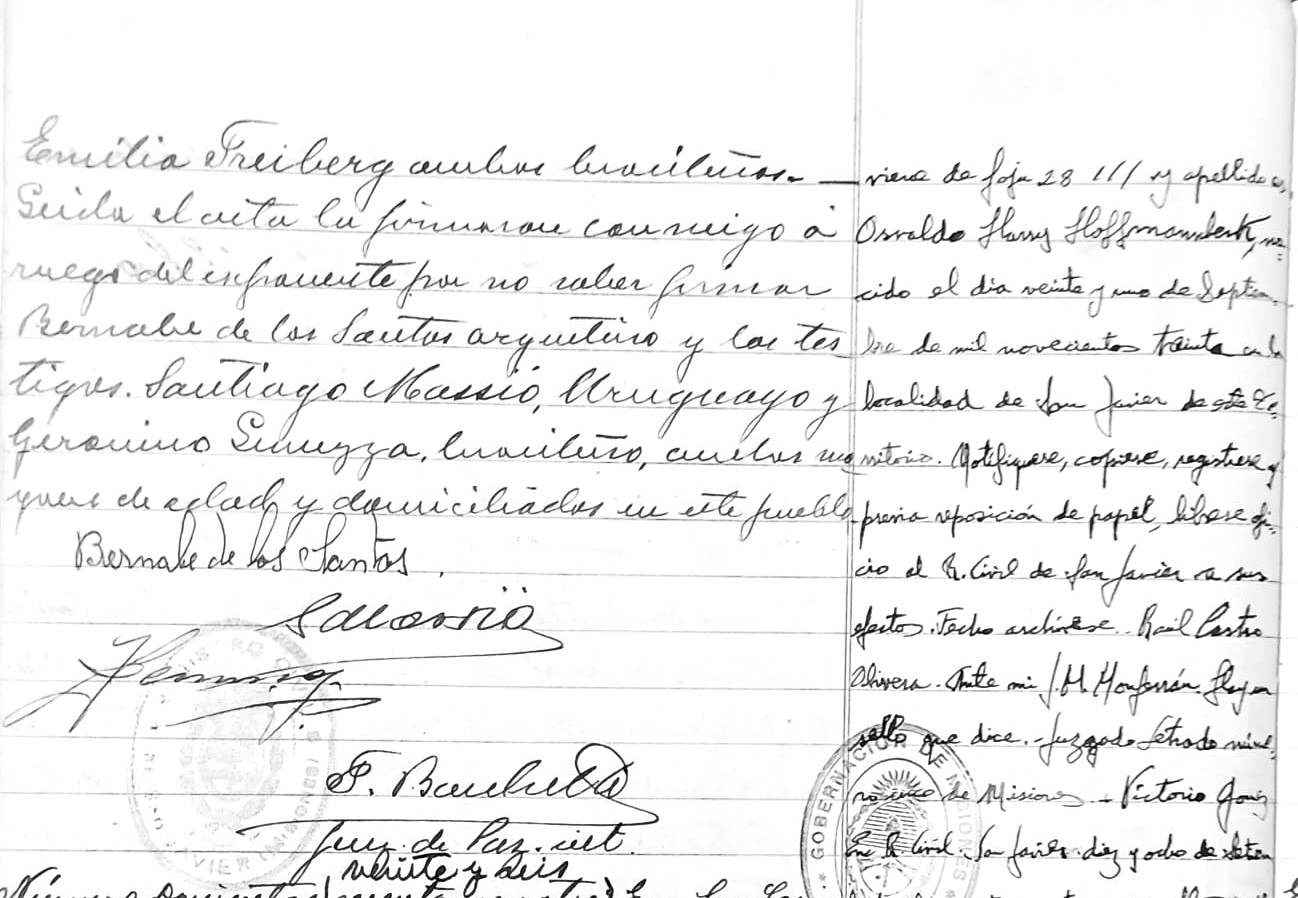 Emilia Freiberg ambos brasileños.
Leida el acta la firmaron conmigo á
ruego del exponente por no saber firmar
Bernabe de los Santos argentino y los tes
tigos. Santiago Massió, Uruguayo y
Geronimo brasileño, ambos ma
yores de edad y domiciliados en este pueblo
Bernabe de los Santos.
SMassió
Juez de Paz
veinte y seis
Número
viene de foja 28 /// y apellido es,
Osvaldo Harry na=
cido el dia veinte y uno de Septiem-
bre de mil novecientos treinta en la
localidad de San Javier de este Te-
rritorio. Notifiquese, copiese, registrese y
previa reposición de papel, librese ofi-
cio al R. Civil de San Javier a sus
efectos. Fecho archivese. Raúl Castro
Olivera. Ante mi J. M. Monferrán. Hay un
sello que dice. Juzgado Letrado núme-
ro de Misiones Victorio
En R. Civil. San Javier diez y ocho de
GOBERNACION DE MISIONES
JAVIER (MISIONES)